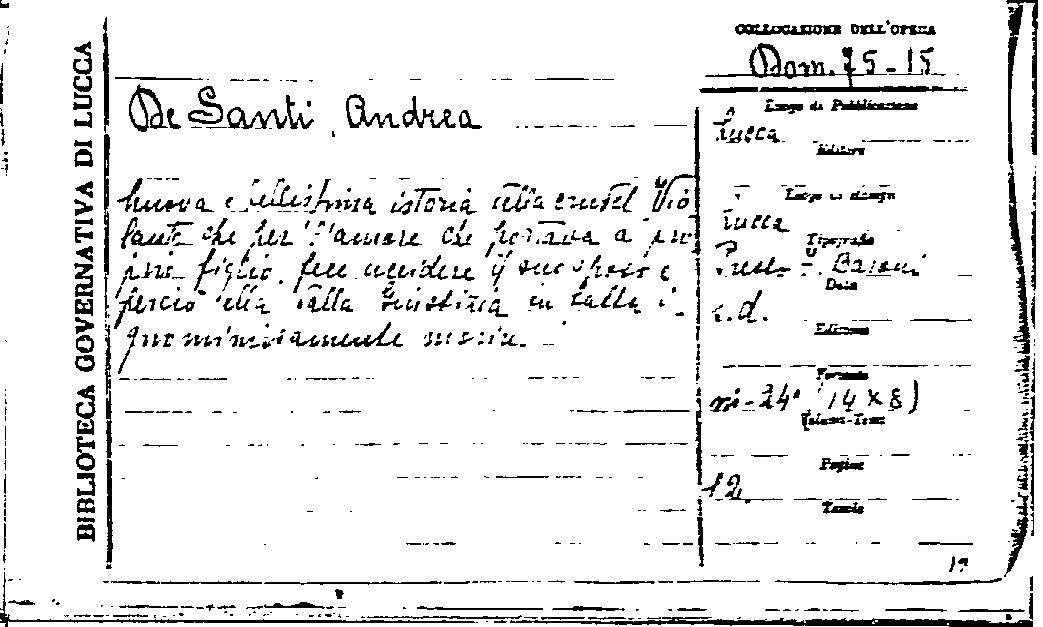 BIBLIOTECA GOVERNATIVA DI LUCCA
COLLOCAZIONE DELL'OPERA
Dom. 75-15
De Santi, Andrea
Nuova e bellissima istoria della crudel Vio
lante che per l'amore che portava a pro
prio figlio, fece uccidere il suo sposo e
perciò ella dalla Giustizia fu fatta i-
gnominiosamente morire.
Luogo di Pubblicazione
Lucca
Editore
Luogo di stampa
Lucca
Tipografia
Presso F. Baroni
Data
s.d.
Edizione
Formato
in-24° (14 x 8)
Volumi-Tomi
Pagine
12.
Tavole